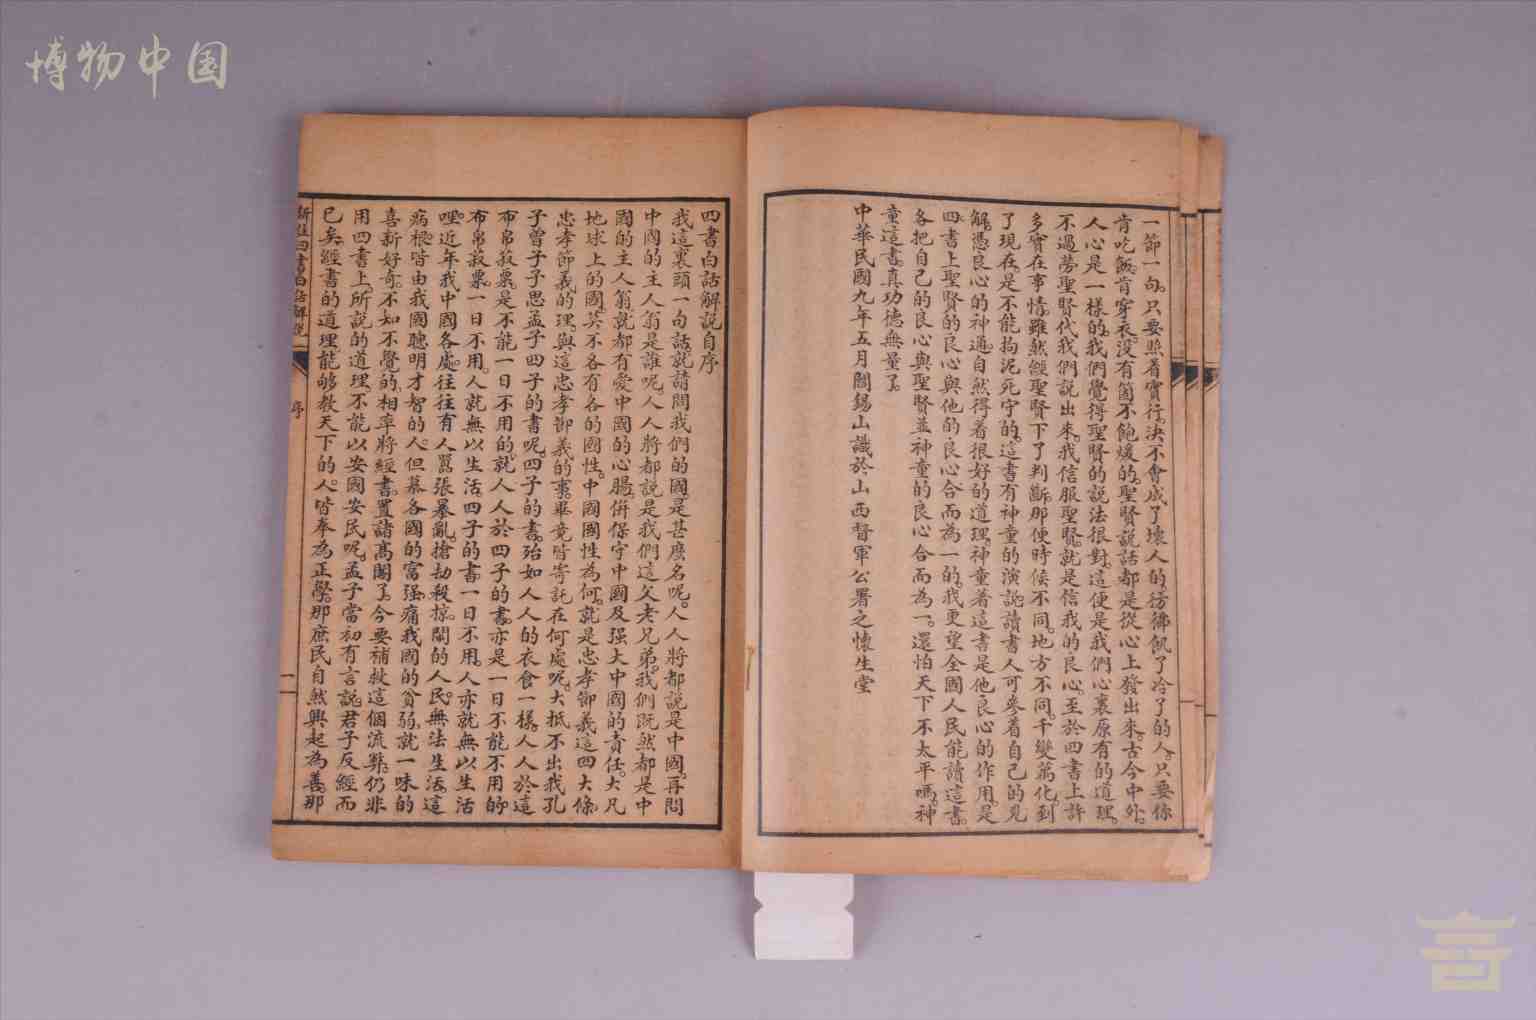 博物中国
一節一句。只要照着實行。决不會成了壞人的。彷彿飢了冷了的人。只要你
肯吃飯。肯穿衣。没有箇不飽煖的。聖賢說話。都是從心上發出來。古今中外。
人心是一樣的。我們覺得聖賢的說法很對。這便是我們心裏原有的道理。
不過勞聖賢代我們說出來。我信服聖賢。就是信我的良心。至於四書上許
多實在事情。雖然經聖賢下了判斷。那便時候不同。地方不同。千變萬化。到
了現在。是不能拘泥死守的。這書有神童的演說。讀書人可參着自己的見
解。憑良心的神通。自然得着很好的道理。神童著這書。是他良心的作用。是
四書上聖賢的良心。與他的良心合而為一的。我更望全國人民能讀這書。
各把自己的良心。與聖賢並神童的良心合而為一。還怕天下不太平嗎。神
童這書。真功德無量了。
中華民國九年五月閻錫山識於山西督軍公署之懷生堂
四書白話解說自序
我這裏頭一句話。就請問我們的國。是甚麼名呢。人人將都說是中國。再問
中國的主人翁是誰呢。人人將都說是我們這父老兄弟。我們既然都是中
國的主人翁。就都有愛中國的心腸。併保守中國及强大中國的責任。大凡
地球上的國。莫不各有各的國性。中國國性為何。就是忠孝節義這四大條。
忠孝節義的理。與這忠孝節義的事。畢竟皆寄託在何處呢。大抵不出我孔
子曾子子思孟子四子的書呢。四子的書。殆如人人的衣食一樣。人人於這
布帛菽粟。是不能一日不用的。就人人於四子的書。亦是一日不能不用的。
布帛菽粟。一日不用。人就無以生活。四子的書。一日不用。人亦就無以生活
哩。近年我中國各處。往往有人囂張暴亂。搶劫殺掠。鬧的人民。無法生活。這
病根。皆由我國聰明才智的人。但慕各國的富强。痛我國的貧弱。就一味的
喜新好奇。不知不覺的。相率將經書。置諸高閣了。今要補救這個流弊。仍非
用四書上。所說的道理。不能以安國安民呢。孟子當初有言說。君子反經而
已矣。經書的道理。能够教天下的人。皆奉為正學。那庶民自然興起為善。那
新註四書白話解說
序
一